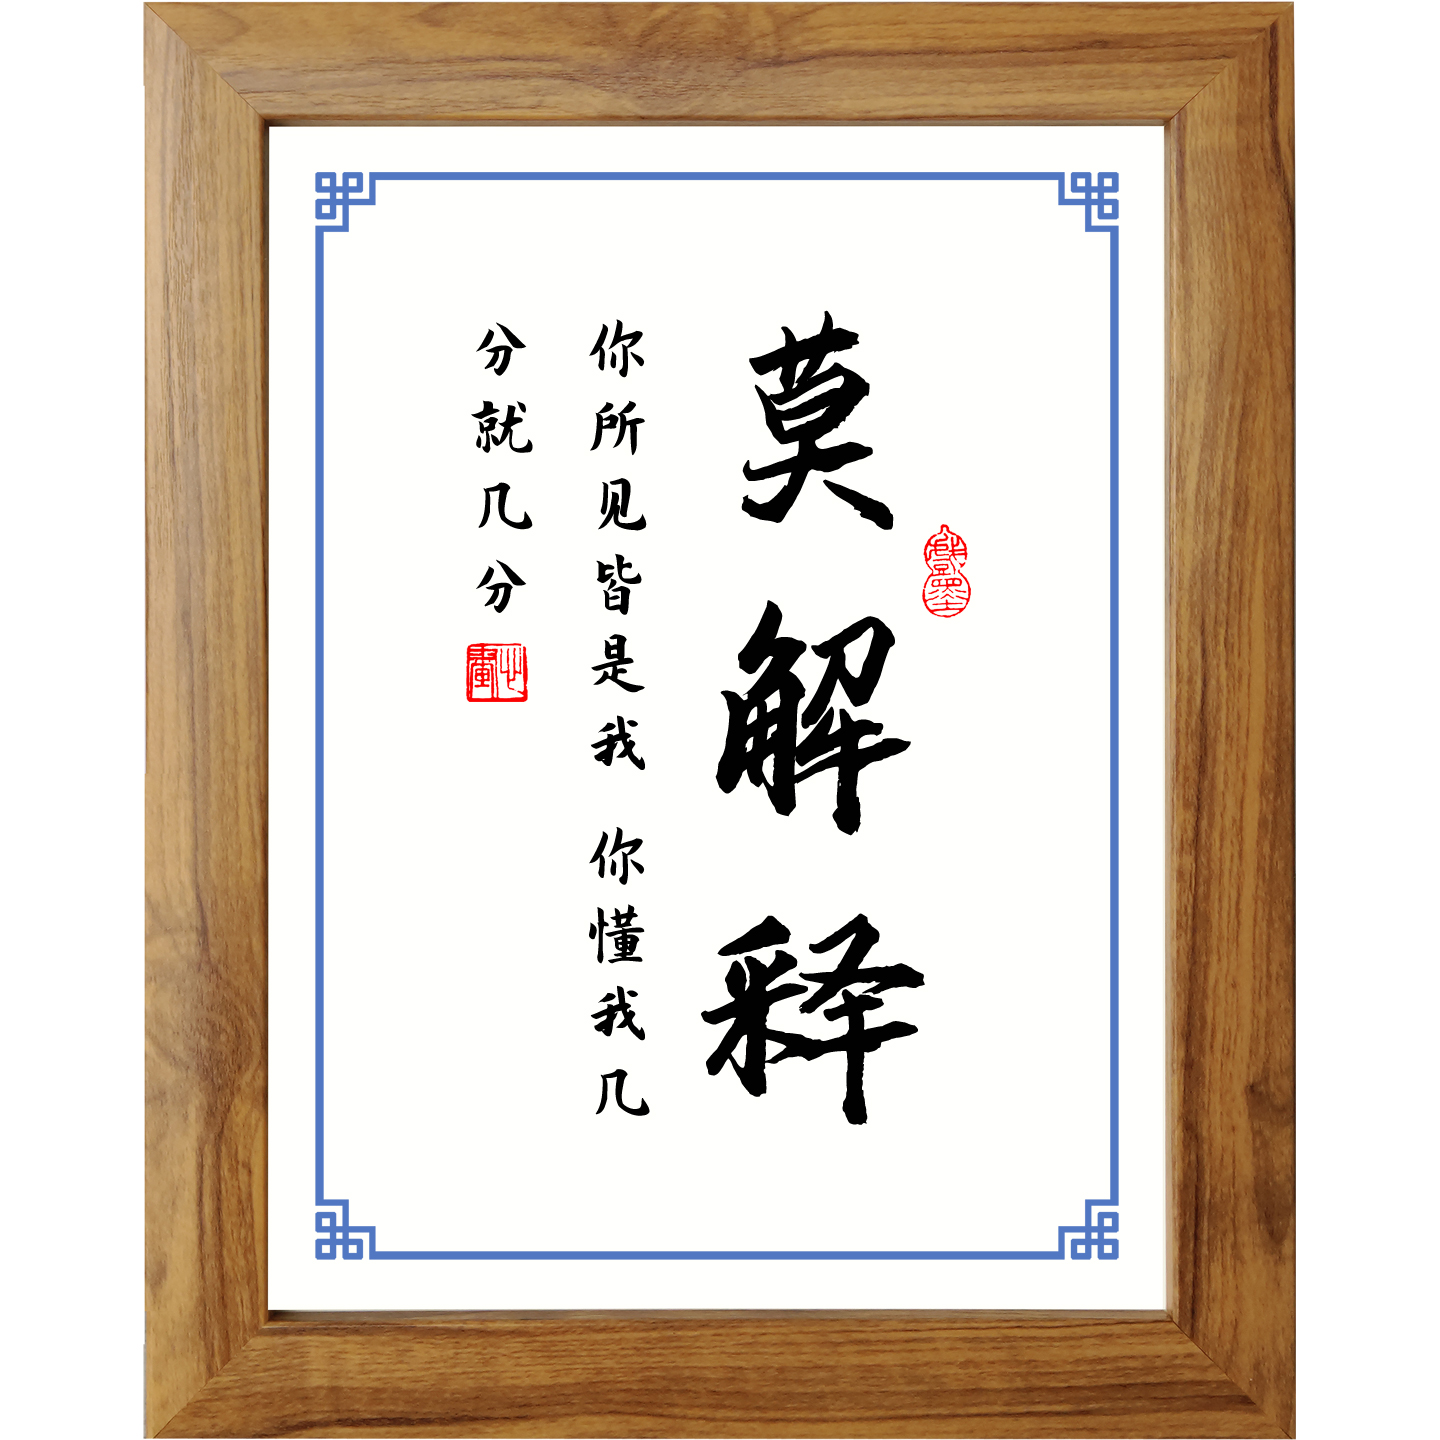 莫解释
你所见皆是我 你懂我几
分就几分
戲墨
心畫